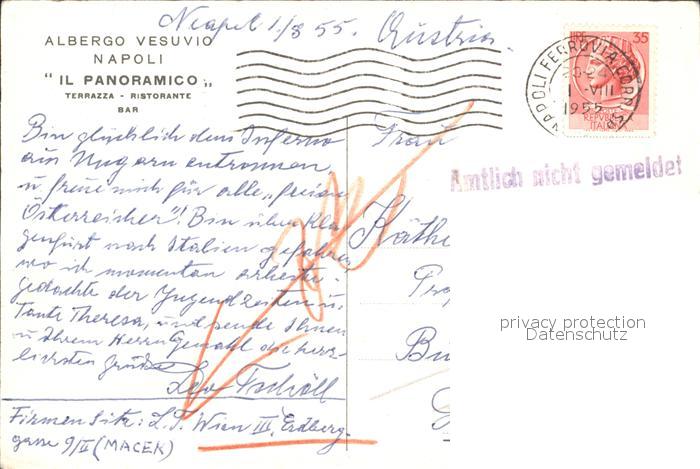 Neapel 1./8 55. Austria.
ALBERGO VESUVIO
NAPOLI
"IL PANORAMICO"
TERRAZZA - RISTORANTE
BAR
35
NAPOLI FERROVIA
1 -VIII
1955
ITALIANA
Amtlich nicht gemeldet
Bin glücklich dem Inferno
aus Ungarn entronnen
u freue mich für alle „freien
Österreicher"! Bin über Kla
genfurt nach Italien gefahren
wo ich momentan arbeite.
gedachte der Jugendzeiten u.
Tante Theresa, und sende Ihnen
u Ihrem Herrn Gemahl die herz-
lichsten Grüße
Leo Tschöll
Firmensitz: L.T. Wien III, Erdberg-
gasse 9/II (MACEK)
Frau
Käthe
Bu
privacy protection
Datenschutz